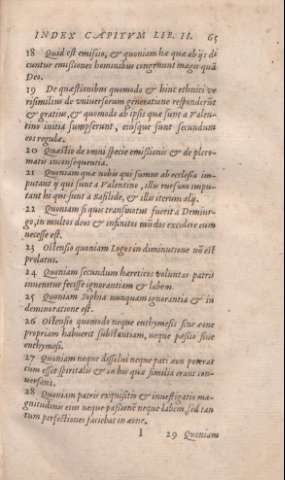 INDEX CAPITVM LIB. II. 65
18 Quid est emissio, & quoniam hæ quæ ab ijs di
cuntur emissiones hominibus congruunt magis quã
Deo.
19 De quæstionibus quomodo & hinc ethnici ve
risimilius de vniuersorum generatione responderũt
& gratius, & quomodo ab ipsis quæ sunt a Valen-
tino initia sumpserunt, eiusque sunt secundum
eos regulæ.
20 Quæstio de omni specie emissionis & de plero-
matis inconsequentia.
21 Quoniam quæ nobis qui sumus ab ecclesia im-
putant ij qui sunt a Valentino, illis rursum impu-
tant hi qui sunt à Basilide, & illis iterum alij.
22 Quoniam si quis transmutat fuerit a Demiur-
go, in multos deos & infinitos mũdos excedere eum
necesse est.
23 Ostensio quoniam Logos in diminutione nõ est
prolatus.
24 Quoniam secundum hæreticos voluntas patris
inuenitur fecisse ignorantiam & labem.
25 Quoniam Sophia nunquam ignorantia & in
deminoratione est.
26 Ostensio quomodo neque enthymesis siue æone
propriam habuerit substantiam, neque passio siue
enthymesi.
27 Quoniam neque dissolui neque pati æon poterat
cum esset spiritalis & in his quæ similia erant con-
uersans.
28 Quoniam patris exquisitio & inuestigatio ma-
gnitudinis eius neque passionẽ neque labem, sed tan
tum perfectiones faciebat in æone.
I 29 Quoniam